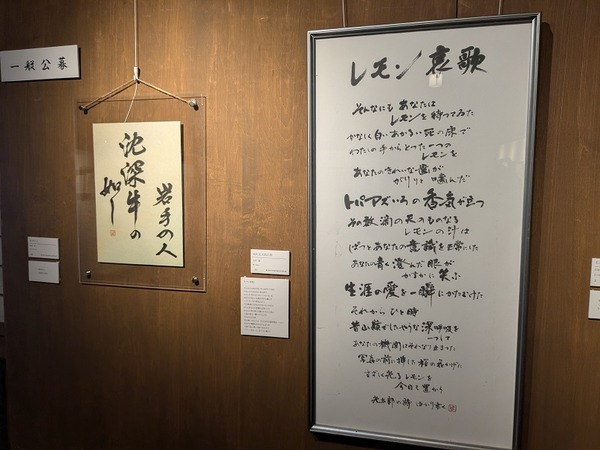 一般公募
岩手の人
沈深牛の
如し
レモン哀歌
そんなにもあなたは
レモンを待つてゐた
かなしく白いあかるい死の床で
わたしの手からとつた一つの
レモンを
あなたのきれいな歯が
がりりと噛んだ
トパアズいろの香氣が立つ
その数滴の天のものなる
レモンの汁は
ぱつとあなたの意識を正常にした
あなたの青く澄んだ眼が
かすかに笑ふ
生涯の愛を一瞬にかたむけた
それからひと時
昔山巓でしたやうな深呼吸を
一つして
あなたの機関はそれなり止まつた
写真の前に挿した桜の花かげに
すずしく光るレモンを
今日も置かう
光太郎の詩